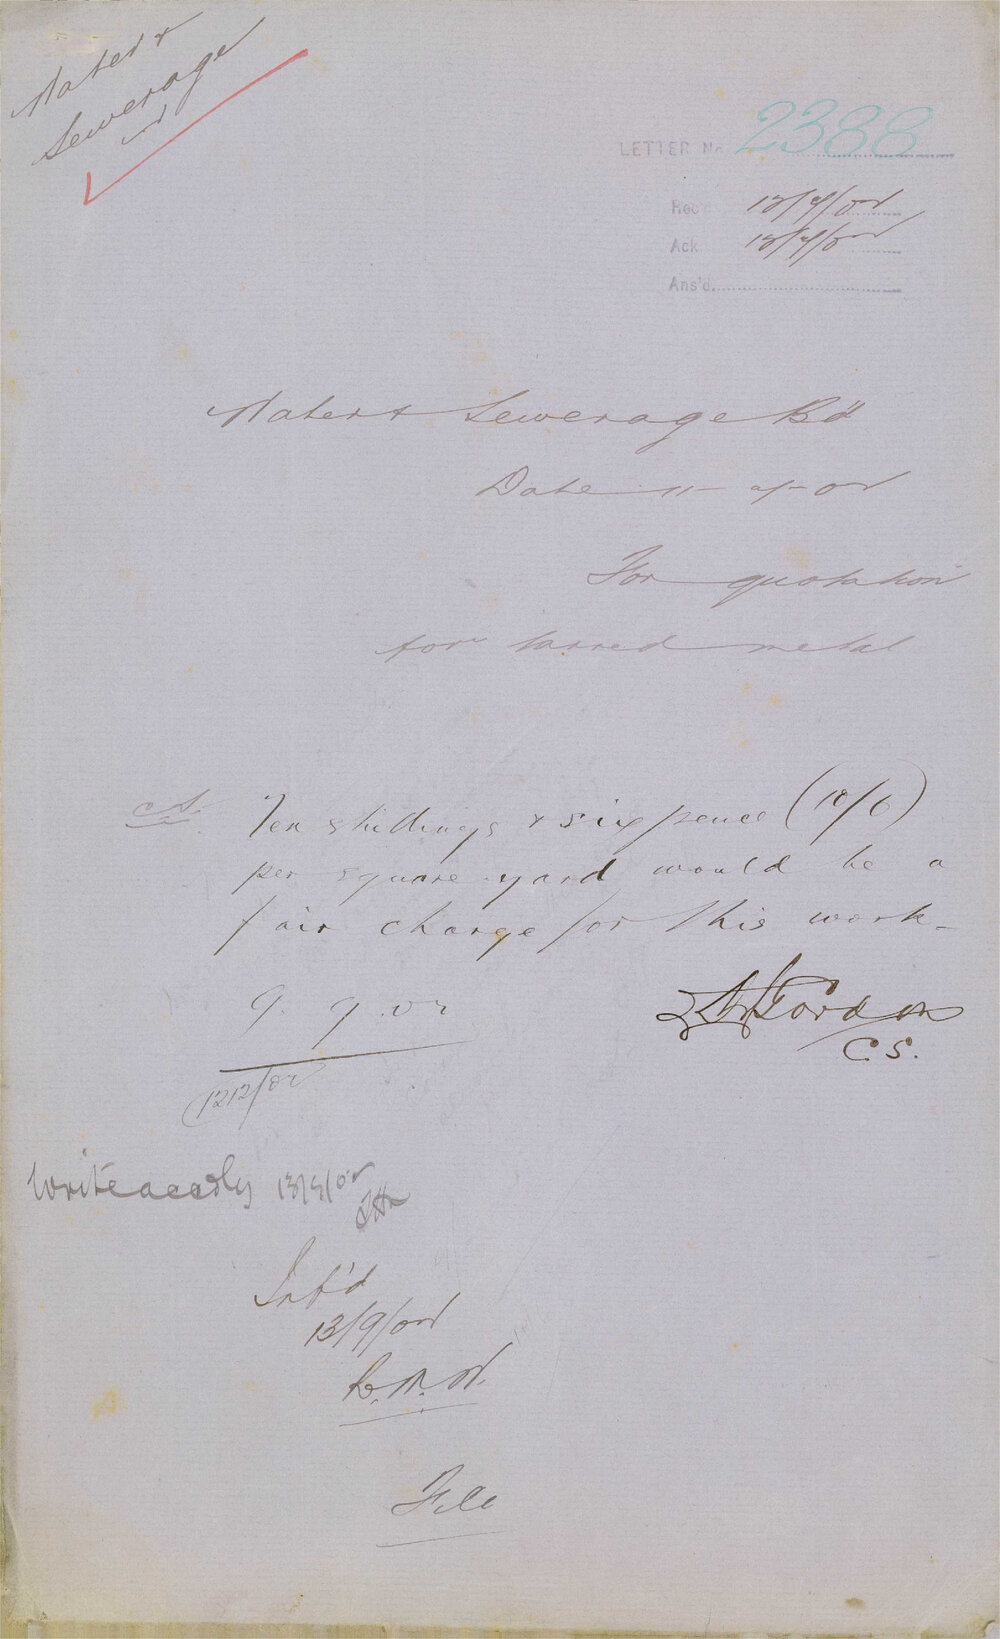 Water &
Sewerage
LETTER No. 2388
Rec'd 12/9/02
Ack 12/9/02
Ans'd.
Water & Sewerage Bd
Date 11-9-02
For quotation
for tarred metal
C.S. Ten shillings & sixpence (10/6)
per square yard would be a
fair charge for this work -
9.9.02
Gordon
C.S.
1212/02
Write accdly 13/9/02
Inf'd
13/9/02
File